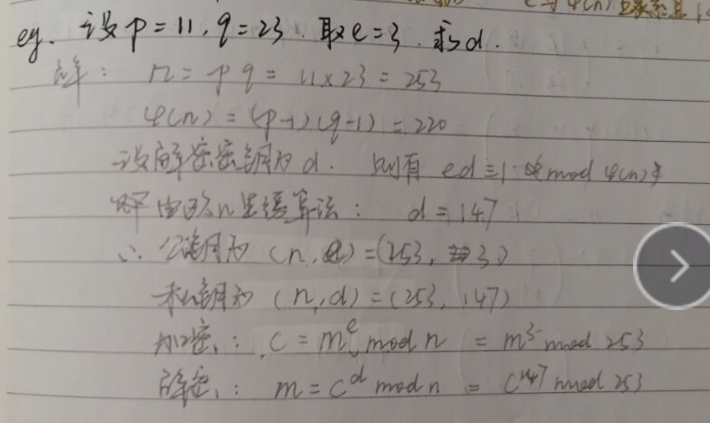 e与φ(n)互素
eg. 设p=11, q=23. 取e=3. 求d.
解: n=pq=11×23=253
φ(n)=(p-1)(q-1)=220
设解密密钥为d. 则有 ed≡1 mod φ(n)
由欧几里得算法: d=147
∴ 公钥为 (n, e)=(253, 3)
私钥为 (n, d)=(253, 147)
加密: C=m^e mod n = m^3 mod 253
解密: m=C^d mod n = C^147 mod 253